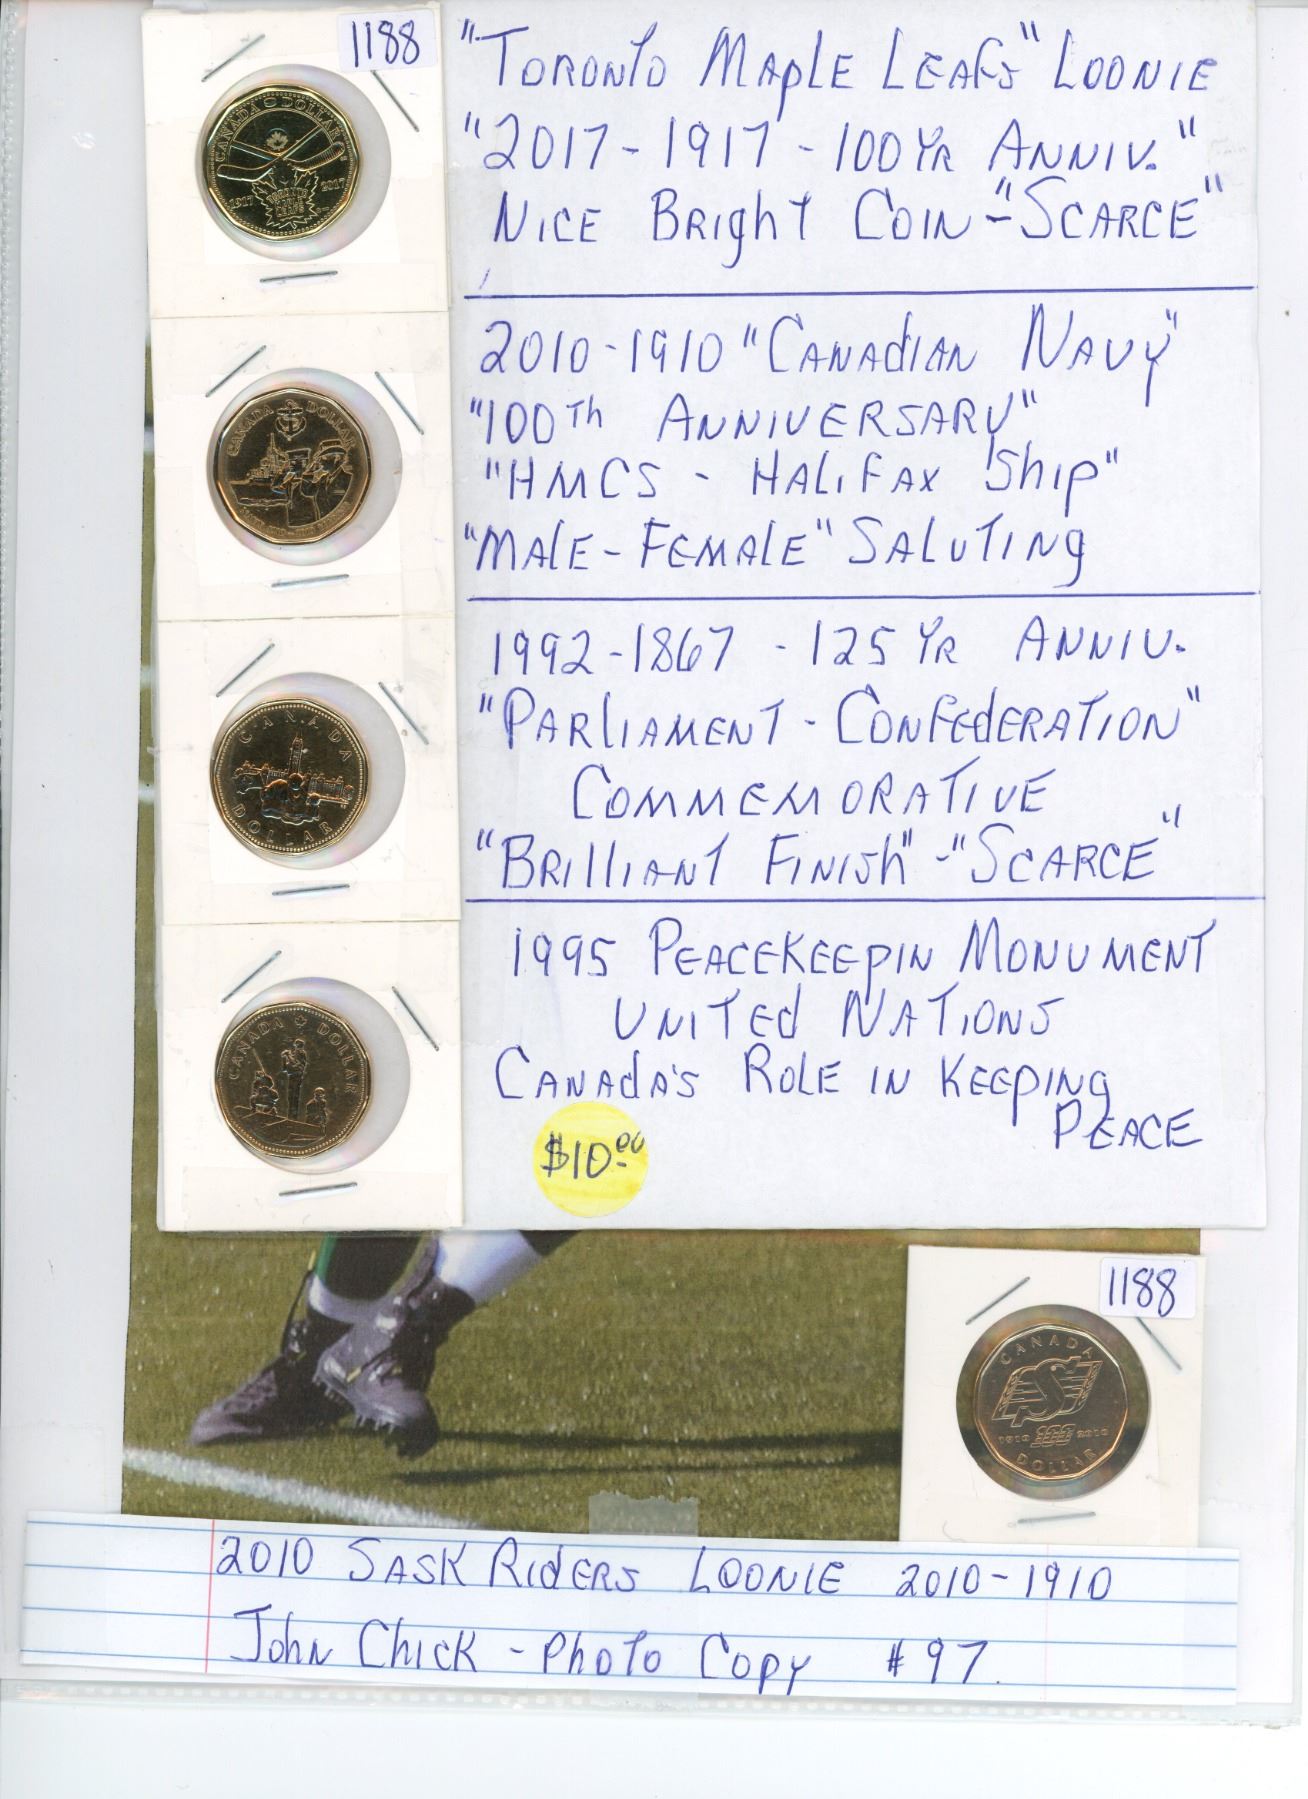 1188
"TORONTO MAPLE LEAFS" LOONIE
"2017-1917-100 YR ANNIV."
NICE BRIGHT COIN-"SCARCE"
CANADA DOLLAR
1917 2017
TORONTO MAPLE LEAFS
2010-1910 "CANADIAN NAVY"
"100Th ANNIVERSARY"
"HMCS - HALIFAX Ship"
"MALE-FEMALE" SALUTING
CANADA DOLLAR
1992-1867 - 125 YR ANNIV.
"PARLIAMENT - CONFEDERATION"
COMMEMORATIVE
"BRILLIANT FINISH"-"SCARCE"
CANADA
DOLLAR
1995 PEACEKEEPIN MONUMENT
UNITED NATIONS
CANADA'S ROLE IN KEEPING
PEACE
$10.00
CANADA DOLLAR
1188
CANADA
1910 2010
DOLLAR
2010 SASK RIDERS LOONIE 2010-1910
John Chick - Photo Copy #97.